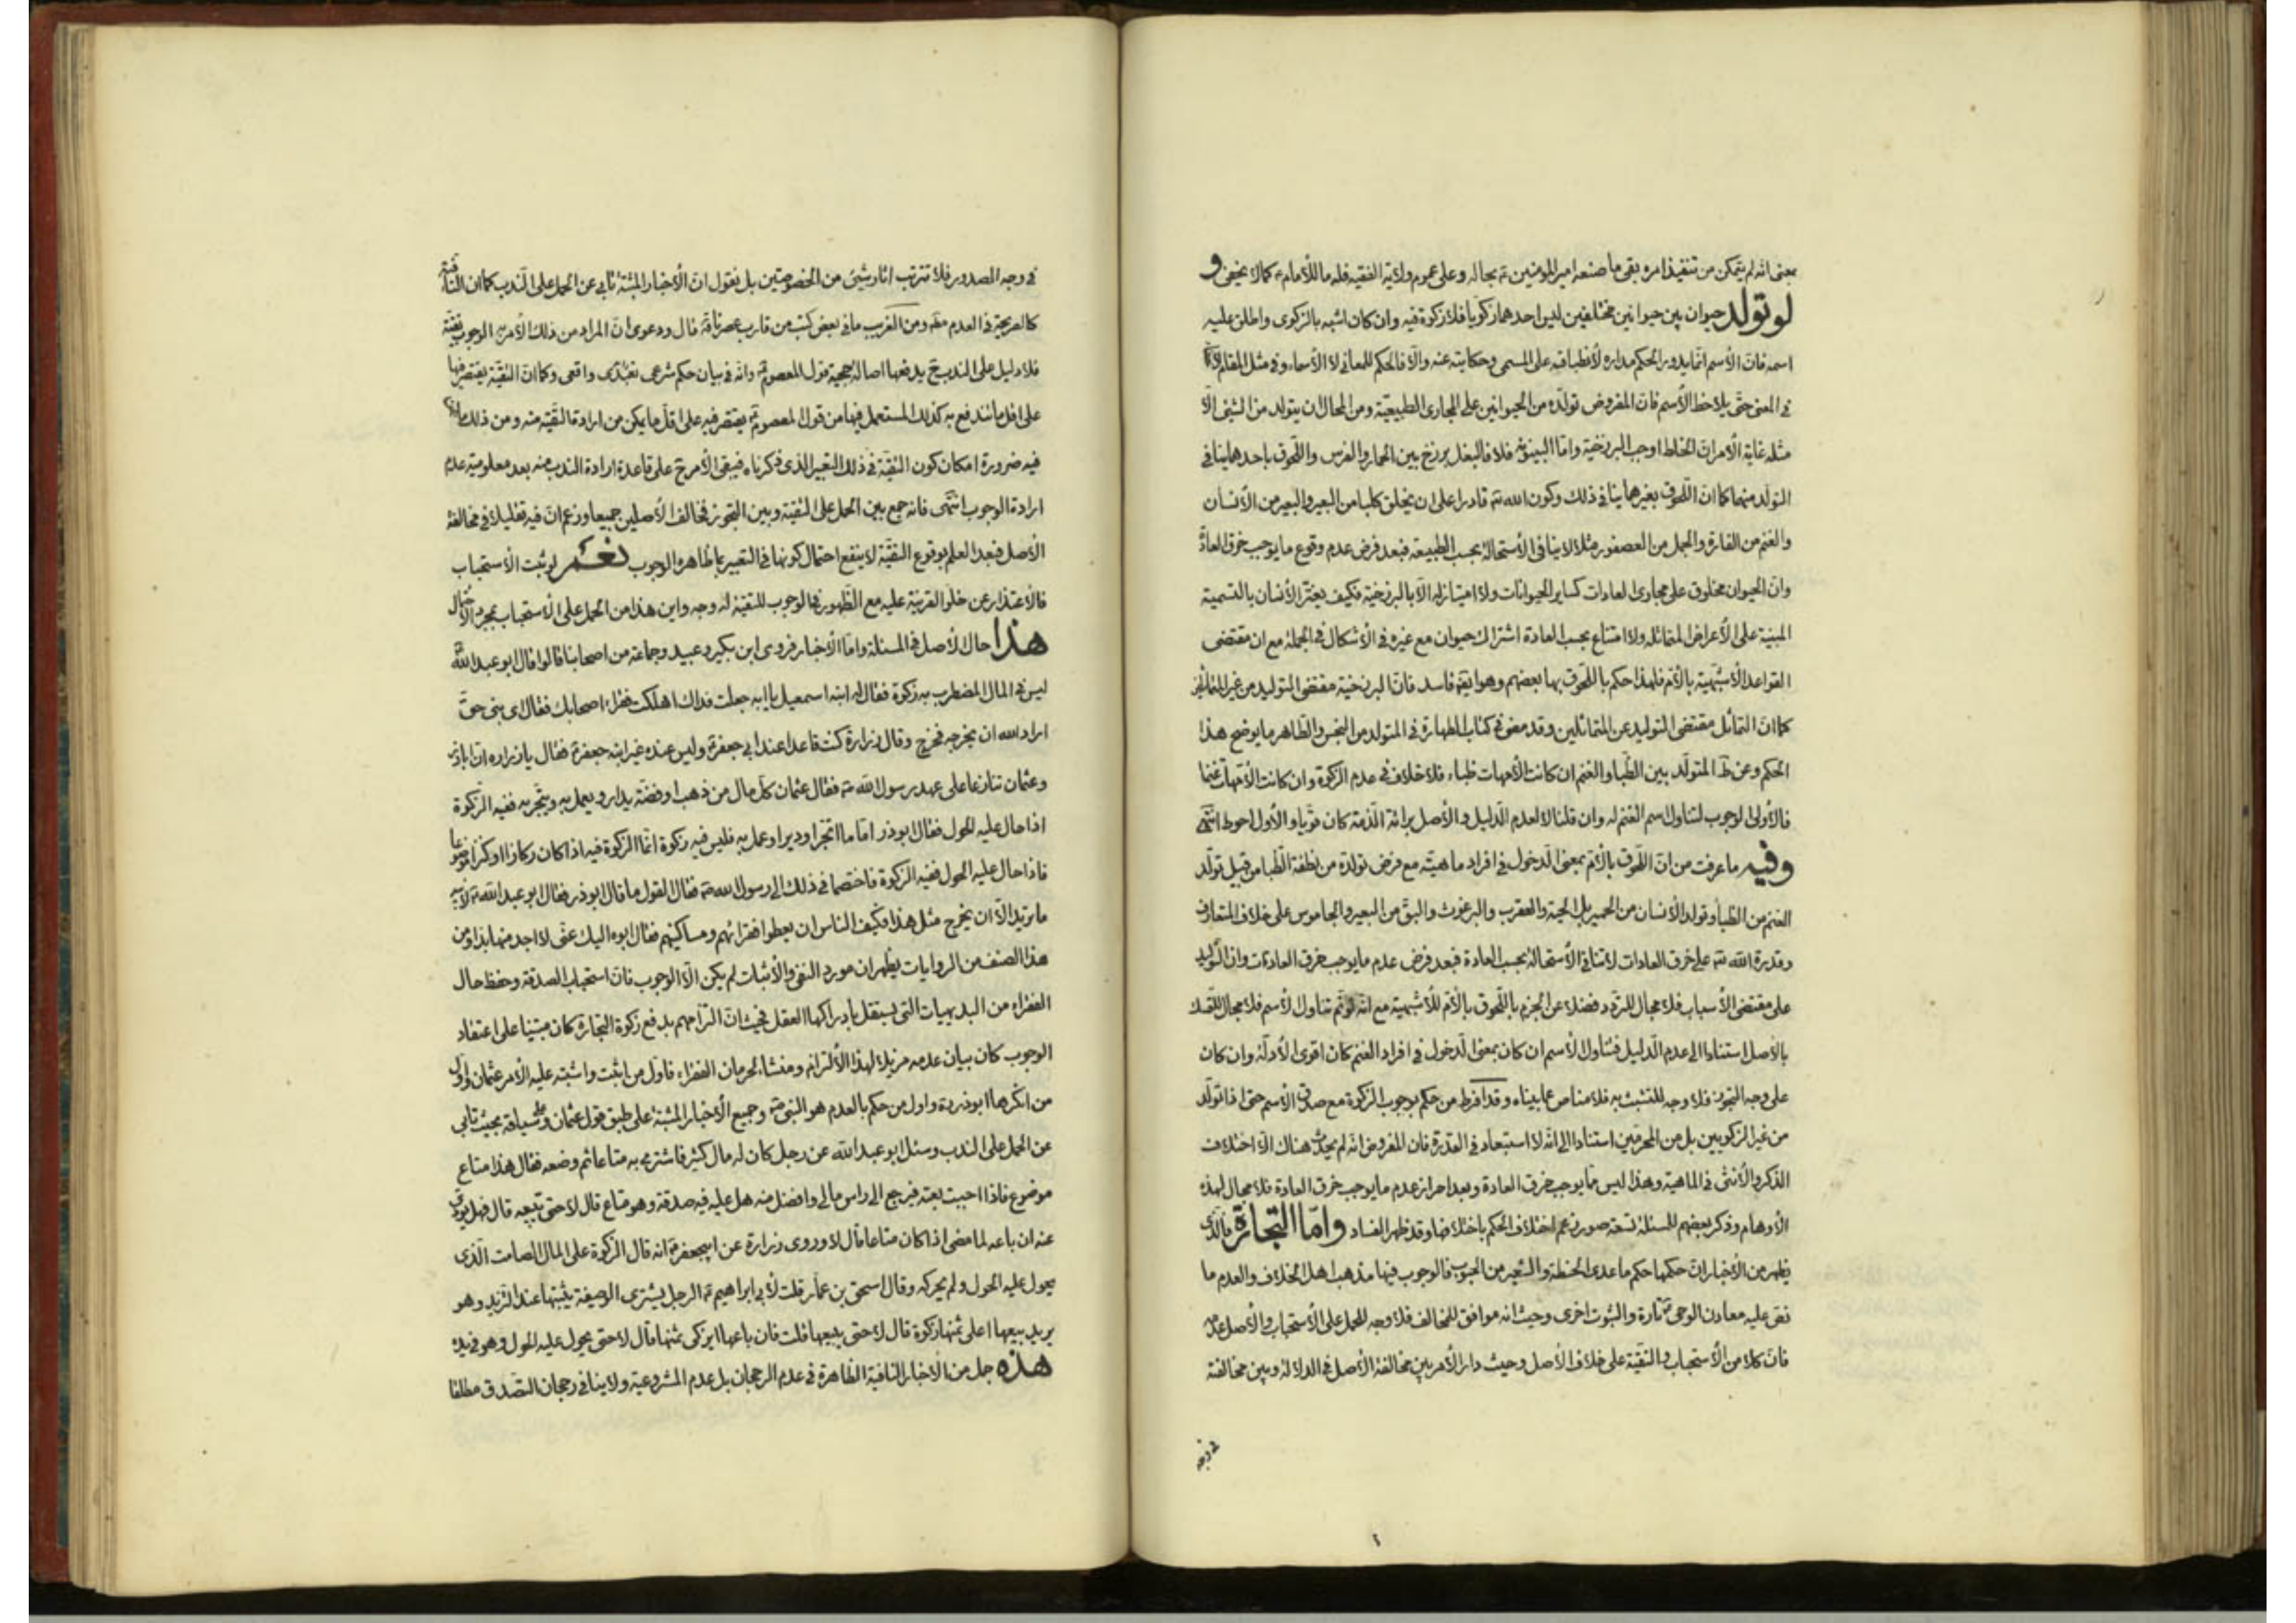 بمعنى انه لم يتمكن من تنفيذ امره بقى ما صنعه امير المؤمنين ع بحاله وعلى عموم ولاية الفقيه فله ما للأمام ع كما لا يخفى و
لو تولد حيوان بين حيوانين مختلفين ليس احدهما زكويا فلا زكوة فيه وان كان اشبه بالزكوى واطلق عليه
اسمه فان الأسم انما يدور الحكم مداره لأنطباقه على المسمى وحكايته عنه والا فالحكم للمعانى لا الأسماء وفى مثل المقام
فى المعنى حتى يلاحظ الأسم فان المفروض تولده من الحيوانين على المجارى الطبيعية ومن المحال ان يتولد من الشئ الا
مثله غاية الأمر ان الخلط اوجب البرزخية واما البينونة فلا فالبغل برزخ بين الحمار والفرس واللحوق باحدهما ينافى
التولد منهما كما ان اللحوق بغيرهما ينافى ذلك وكون الله تع قادرا على ان يخلق كلبا من البعير والبعير من الأنسان
والغنم من الفارة والجمل من العصفور مثلا لا ينافى الأستحالة بحسب الطبيعة فبعد فرض عدم وقوع ما يوجب خرق العادة
وان الحيوان مخلوق على مجارى العادات كساير الحيوانات ولا امتياز له الا بالبرزخية فكيف يغتر الأنسان بالتسمية
المبنية على الأعراض المتماثله ولا امتناع بحسب العادة اشتراك حيوان مع غيره فى الأشكال فى الجملة مع ان مقتضى
القواعد الأشبهية بالأم فلهذا حكم باللحوق بها بعضهم وهو ايضا فاسد فان البرزخية مقتضى التوليد من غير المتماثلين
كما ان التماثل مقتضى التوليد عن المتماثلين وقد مضى فى كتاب الطهارة فى المتولد من النجس والطاهر ما يوضح هذا
الحكم وعن ط المتولد بين الظبا والغنم ان كانت الأمهات ظباء فلا خلاف فى عدم الزكوة وان كانت الأمهات غنما
فالأولى الوجوب لتناول اسم الغنم له وان قلنا لا لعدم الدليل والأصل برائة الذمة كان قويا والأول احوط انتهى
وفيه ما عرفت من ان اللحوق بالأم بمعنى الدخول فى افراد ماهيته مع فرض تولده من نطفة الظبا من قبيل تولد
الغنم من الظبا وتولد الأنسان من الحمير بل الحية والعقرب والبرغوث والبق من البعير والجاموس على خلاف المتعارف
وقدرة الله تع على خرق العادات لا تنافى الأستحالة بحسب العادة فبعد فرض عدم ما يوجب خرق العادات وان التوليد
على مقتضى الأسباب فلا مجال للتردد فضلا عن الجزم باللحوق بالأم للأشبهية مع انه لو تم تناول الأسم فلا مجال للتمسك
بالأصل استنادا الى عدم الدليل فتناول الأسم ان كان بمعنى الدخول فى افراد الغنم كان اقوى الأدلة وان كان
على وجه التجوز فلا وجه للتشبث به فلا مناص عما بيناه وقد افرط من حكم بوجوب الزكوة مع صدق الأسم حتى اذا تولد
من غير الزكويين بل من المحرمين استنادا الى انه لا استبعاد فى القدرة فان المفروض انه لم يحدث هناك الا اختلاف
الذكر والأنثى فى الماهية وهذا ليس مما يوجب خرق العادة وبعد احراز عدم ما يوجب خرق العادة فلا مجال لهذه
الأوهام وذكر بعضهم للمسئلة تسعة صور زعم اختلاف الحكم باختلافها وقد ظهر الفساد واما التجارة فالذى
يظهر من الأخبار ان حكمها حكم ما عدى الحنطة والشعير من الحبوب فالوجوب فيها مذهب اهل الخلاف والعدم ما
نص عليه معادن الوحى تارة والثبوت اخرى وحيث انه موافق للمخالف فلا وجه للحمل على الأستحباب والأصل عدمه
فان كلا من الأستحباب والتقية على خلاف الأصل وحيث دار الأمر بين مخالفة الأصل فى الدلالة وبين مخالفته
فى وجه
فى وجه الصدور فلا تترتب اثار شئ من الخصوصيتين بل نقول ان الأخبار المثبتة تابى عن الحمل على الندب كما ان النافية
كالصريحة فى العدم مطلقا ومن الغريب ما فى بعض كتب من قارب عصرنا قال ودعوى ان المراد من ذلك الأمر الوجوب تقية
فلا دليل على الندب ح يدفعها اصالة حجية قول المعصوم ع وانه فى بيان حكم شرعى تعبدى واقعى وكما ان التقية يقتصر فيها
على اقل ما تندفع به كذلك المستعمل فيها من قول المعصوم ع يقتصر فيه على اقل ما يمكن من ارادة التقية منه ومن ذلك ما نحن
فيه ضرورة امكان كون التقية فى ذلك التعبير الذى ذكرناه فيبقى الأمر ح على قاعدة ارادة الندب منه بعد معلومية عدم
ارادة الوجوب انتهى فانه جمع بين الحمل على التقية وبين التجوز فخالف الأصلين جميعا وزعم ان فيه تقليلا فى مخالفة
الأصل فبعد العلم بوقوع التقية لا ينفع احتمال كونها فى التعبير بما ظاهره الوجوب نعم لو ثبت الأستحباب
فالأعتذار عن خلو القرينة عليه مع الظهور فى الوجوب للتقية له وجه واين هذا من الحمل على الأستحباب بمجرد الأحتمال
هذا حال الأصل فى المسئلة واما الأخبار فروى ابن بكير وعبيد وجماعة من اصحابنا قالوا قال ابو عبد الله ع
ليس فى المال المضطرب به زكوة فقال له ابنه اسمعيل يا ابه جعلت فداك اهلكت فقراء اصحابك فقال اى بنى حق
اراد الله ان يخرجه فخرج وقال زرارة كنت قاعدا عند ابى جعفر ع وليس عنده غير ابنه جعفر ع فقال يا زراره ان اباذر
وعثمان تنازعا على عهد رسول الله ص فقال عثمان كل مال من ذهب او فضة يدار ويعمل به ويتجر به ففيه الزكوة
اذا حال عليه الحول فقال ابوذر اما ما اتجر او دير او عمل به فليس فيه زكوة انما الزكوة فيه اذا كان ركازا او كنزا موضوعا
فاذا حال عليه الحول ففيه الزكوة فاختصما فى ذلك الى رسول الله ص فقال القول ما قال ابوذر فقال ابو عبد الله ع لأبيه
ما تريد الا ان يخرج مثل هذا فكيف الناس ان يعطوا فقرائهم ومساكينهم فقال ابوه اليك عنى لا اجد منها بدا ومن
هذا الصنف من الروايات يظهر ان مورد النفى والأثبات لم يكن الا الوجوب فان استحباب الصدقة وحفظ حال
الفقراء من البديهيات التى يستقل بادراكها العقل فحيث ان التزامهم بدفع زكوة التجارة كان مبتنيا على اعتقاد
الوجوب كان بيان عدمه مزيلا لهذا الألتزام ومنشاء لحرمان الفقراء فاول من اثبت واشتبه عليه الأمر عثمان واول
من انكرها ابوذر ره واول من حكم بالعدم هو النبى ص وجميع الأخبار المثبتة على طبق قول عثمان وعلى سياقة بحيث تابى
عن الحمل على الندب وسئل ابو عبد الله عن رجل كان له مال كثير فاشترى به متاعا ثم وضعه فقال هذا متاع
موضوع فاذا احببت بعته فيرجع الى راس مالى وافضل منه هل عليه فيه صدقة وهو متاع قال لا حتى تبيعه قال فهل يؤدى
عنه ان باعه لما مضى اذا كان متاعا قال لا وروى زرارة عن ابيجعفر ع انه قال الزكوة على المال الصامت الذى
يحول عليه الحول ولم يحركه وقال اسحق بن عمار قلت لأبى ابراهيم ع الرجل يشترى الوصيفة يثبتها عنده لتزيد وهو
يريد بيعها اعلى ثمنها زكوة قال لا حتى يبيعها قلت فان باعها ايزكى ثمنها قال لا حتى يحول عليه الحول وهو فى يده
هذه جل من الأخبار النافية الظاهرة فى عدم الرجحان بل عدم المشروعية ولا ينافى رجحان التصدق مطلقا